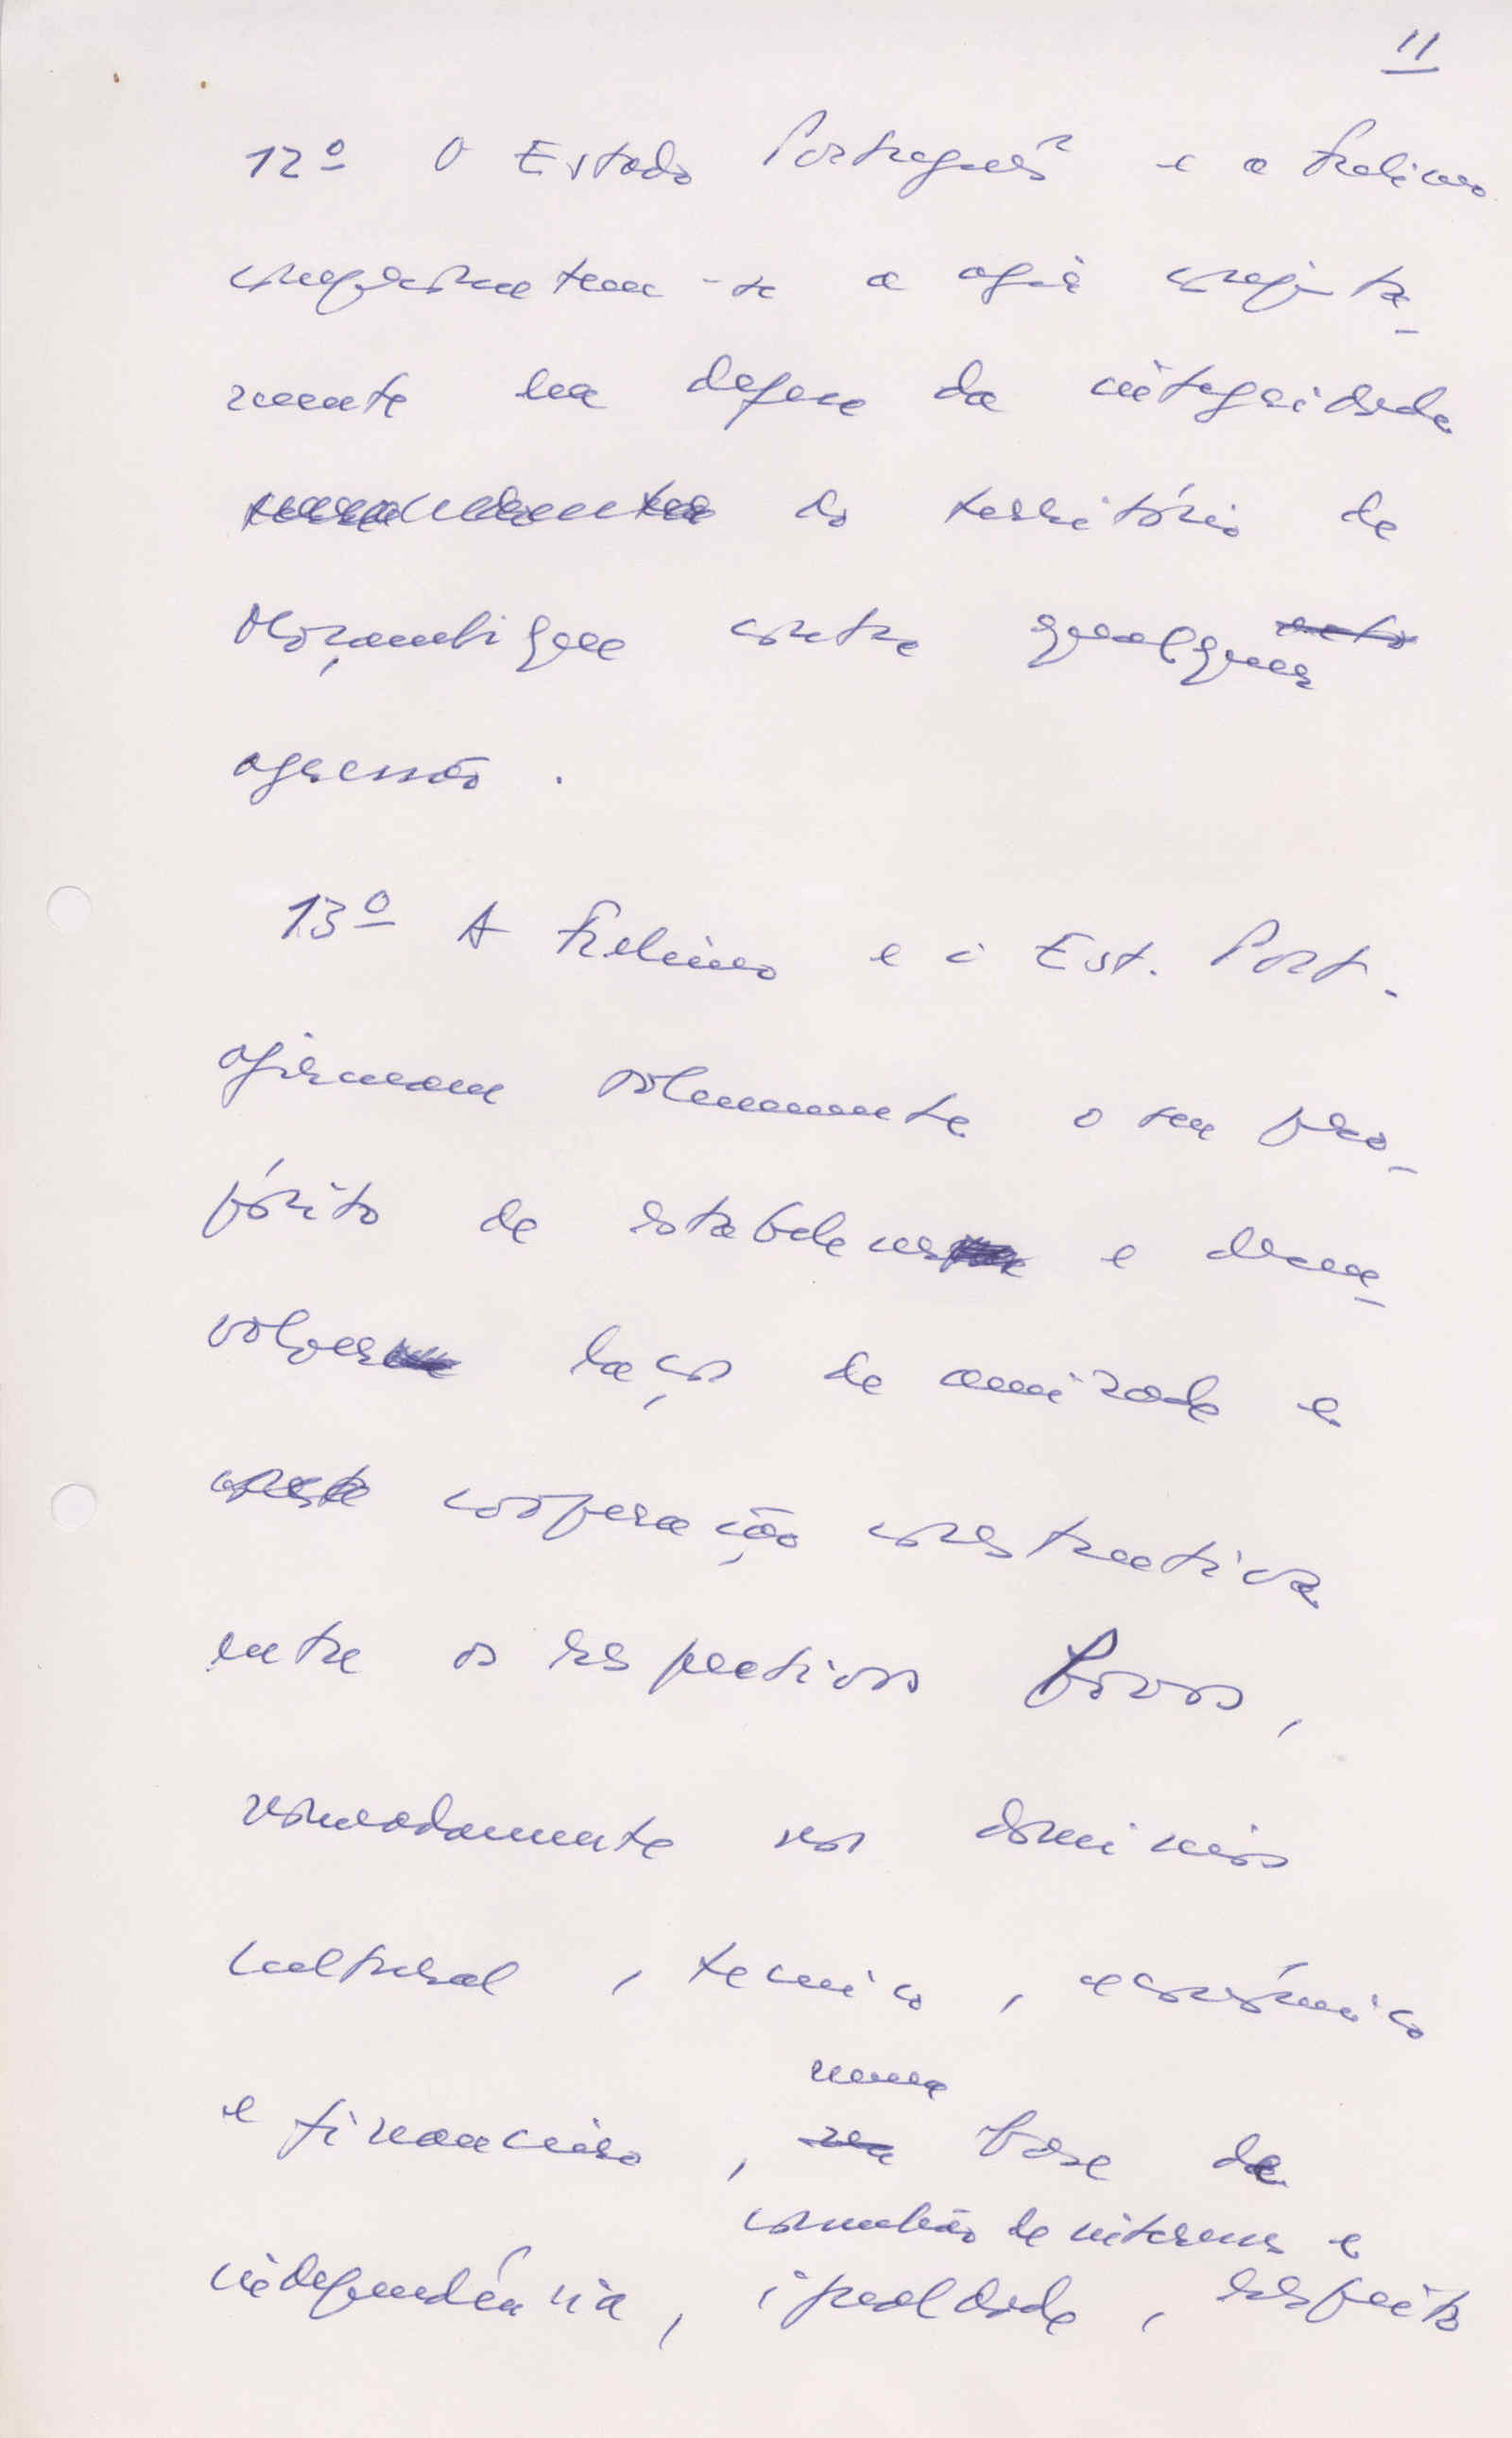 11
12º O Estado Português e a Frelimo
comprometem-se a agir conjunta-
mente na defesa da integridade
do território de
Moçambique contra qualquer acto
agressão.
13º A Frelimo e o Est. Port.
afirmam solenemente o seu pro-
pósito de estabelecer e desen-
volver laços de amizade e
cooperação construtiva
entre os respectivos Povos,
nomeadamente nos domínios
cultural, tecnico, económico
e financeiro, numa na base de
comunhão de interesses e
independência, igualdade, respeito